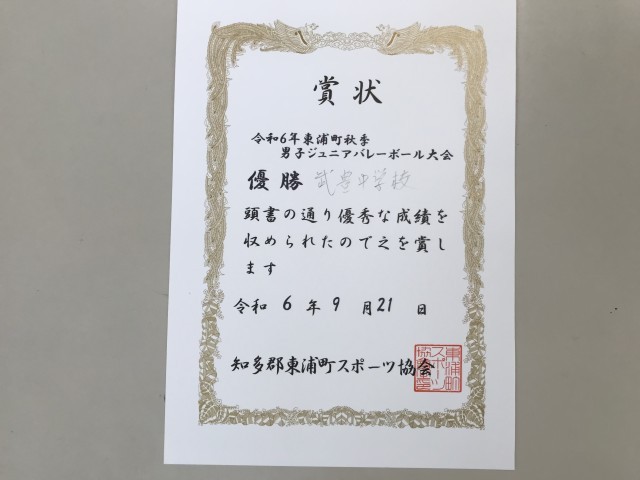 賞状
令和6年東浦町秋季
男子ジュニアバレーボール大会
優勝 武豊中学校
頭書の通り優秀な成績を
収められたので之を賞し
ます
令和 6 年 9 月 21 日
知多郡東浦町スポーツ協会
東浦町
スポーツ
協会之印